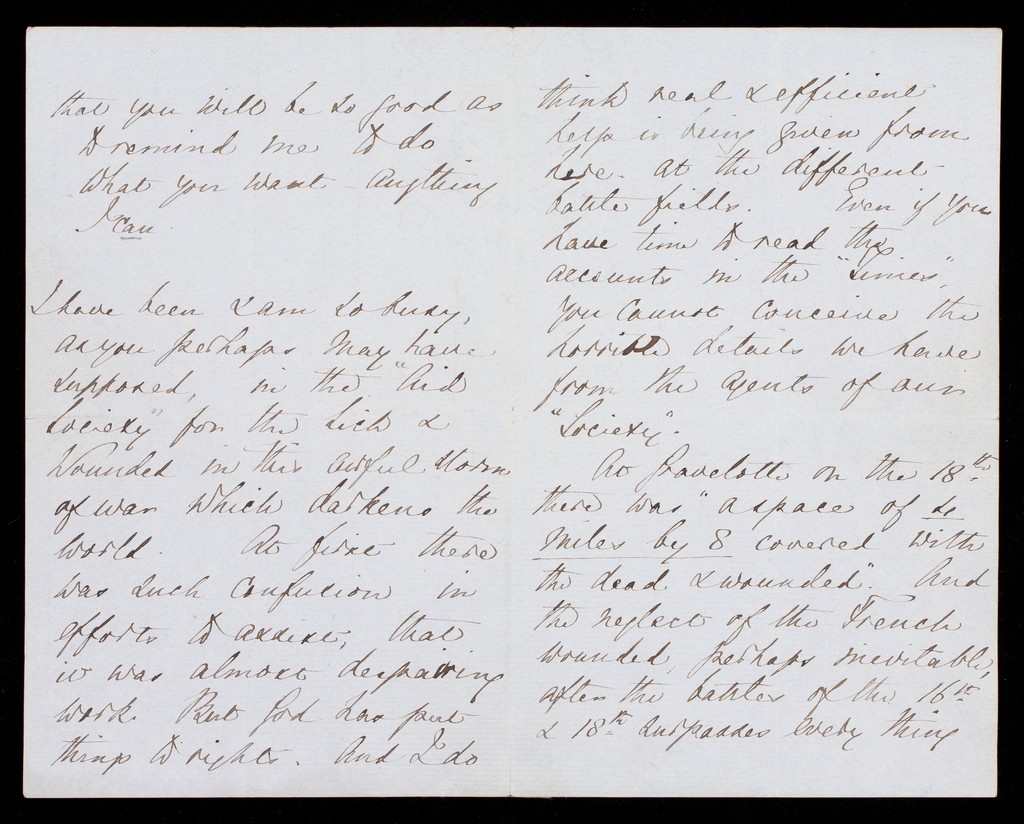 that you will be so good as
to remind me to do
what you want - anything
I can.
I have been & am so busy,
as you perhaps may have
supposed, in the "Aid
Society" for the Sick &
Wounded in this awful storm
of war which darkens the
world. At first there
was such confusion in
efforts to assist, that
it was almost despairing
work. But God has put
things to rights. And I do
think real & efficient
help is being given from
here - at the different
battle fields. Even if you
have time to read the
accounts in the "Times",
you cannot conceive the
horrible details we have
from the agents of our
"Society".
At Gravelotte on the 18th
there was "a space of
miles by 8 covered with
the dead & wounded". And
the neglect of the French
wounded, perhaps inevitable,
after the battles of the 16th
& 18th surpasses every thing